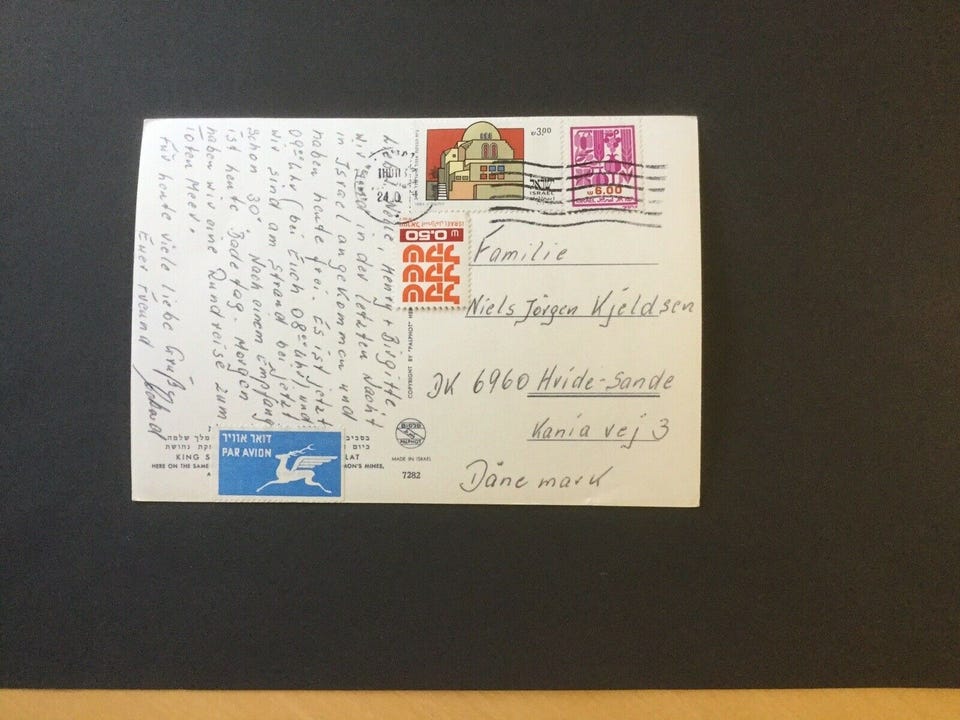 Henry + Birgitte
wir in der letzten Nacht
in Israel angekommen und
haben heute frei. Es ist jetzt
09°° Uhr (bei Euch 08°° Uhr) und
wir sind am Strand bei jetzt
schon 30° Nach einem Empfang
ist heute Badetag. Morgen
haben wir eine Rundreise zum
toten Meer.
Für heute viele liebe Grüße
Euer Freund
3.00
ISRAEL
6.00
0.50
Familie
Niels Jörgen Kjeldsen
DK 6960 Hvide-Sande
Kania vej 3
Dänemark
COPYRIGHT BY "PALPHOT"
PALPHOT
MADE IN ISRAEL
7282
דואר אוויר
PAR AVION
מלך שלמה
KING S LAT
HERE ON THE SAME MON'S MINES,
A